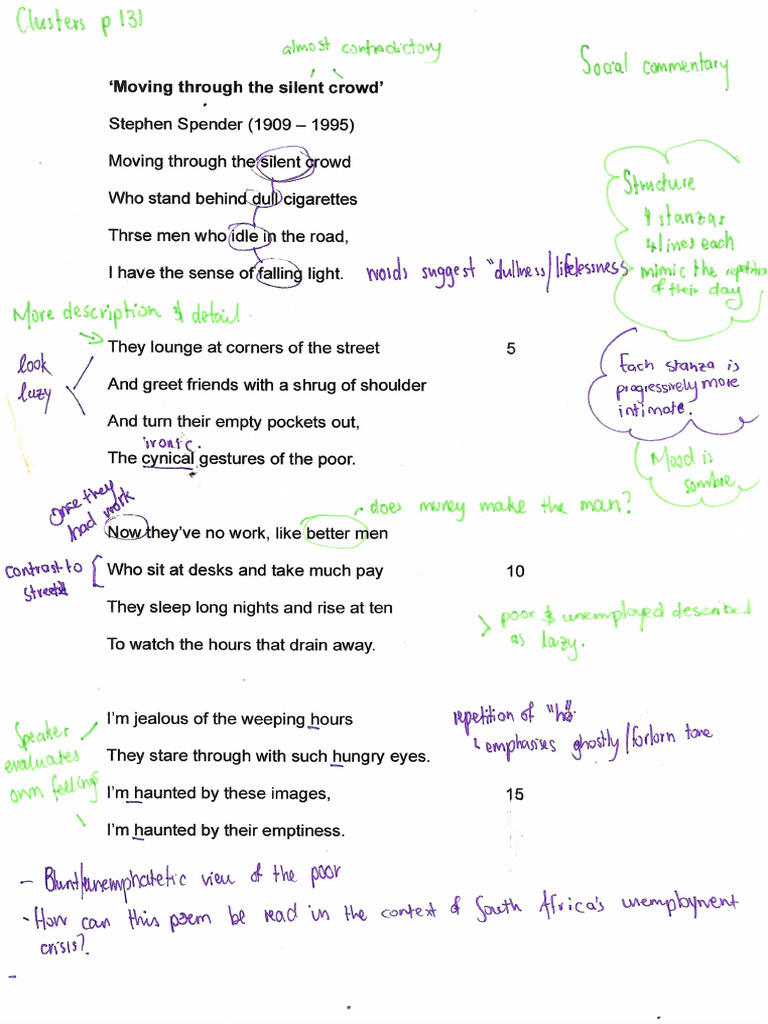 Clusters p 131
almost contradictory
Social commentary
'Moving through the silent crowd'
Stephen Spender (1909 – 1995)
Moving through the silent crowd
Who stand behind dull cigarettes
Thrse men who idle in the road,
I have the sense of falling light.
words suggest "dullness/lifelessness
Structure
4 stanzas
4 lines each
mimic the repetition
of their day
More description & detail
look
lazy
They lounge at corners of the street
5
And greet friends with a shrug of shoulder
And turn their empty pockets out,
ironic.
The cynical gestures of the poor.
Each stanza is
progressively more
intimate.
Mood is
sombre
Once they
had work
does money make the man?
Now they've no work, like better men
contrast to
street
Who sit at desks and take much pay
10
They sleep long nights and rise at ten
To watch the hours that drain away.
poor & unemployed described
as lazy.
Speaker
evaluates
own feelings
I'm jealous of the weeping hours
They stare through with such hungry eyes.
I'm haunted by these images,
15
I'm haunted by their emptiness.
repetition of "ha"
emphasises ghostly/forlorn tone
- Blunt/unemphatetic view of the poor
- How can this poem be read in the context of South Africa's unemployment
crisis?
-